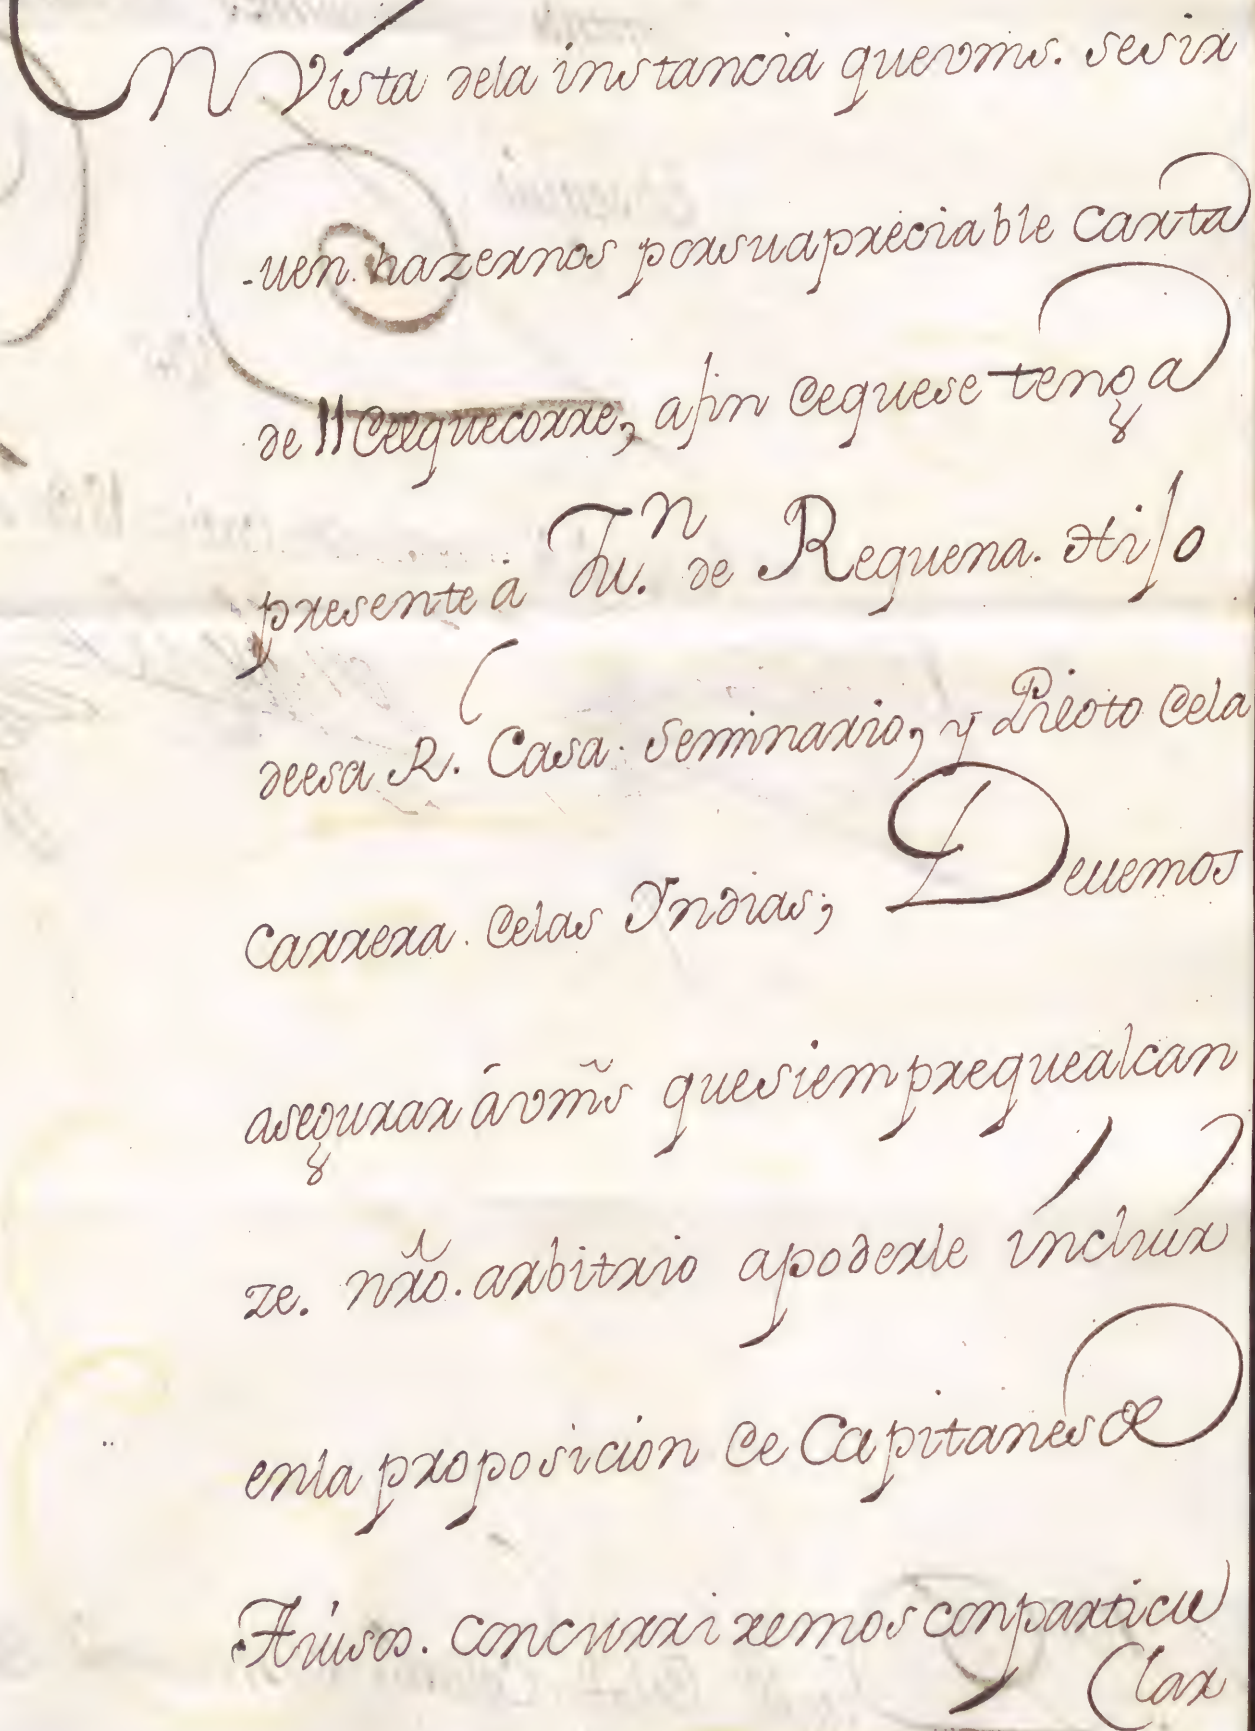 En Vista dela instancia que vms. se sir
-uen hazernos por su apreciable Carta
de 11 del que corre, a fin de que se tenga
presente á Ju.n de Requena. Hijo
de esa R.l Casa Seminario, y Piloto dela
Carrera. delas Yndias; Deuemos
asegurar á vm̃s que siempre que alcan
ze. nr̃o. arbitrio a poderle incluir
en la proposicion de Capitanes de
Auisos. concurriremos con particu
lar